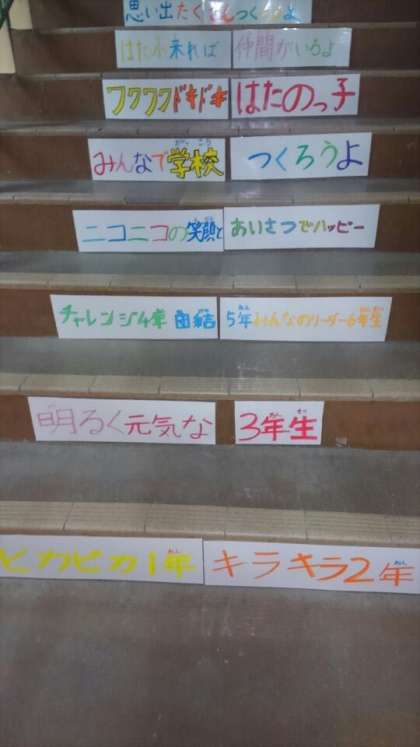 思い出たくさんつくろうよ
はたの来れば 仲間がいるよ
ワクワクドキドキ はたのっ子
みんなで学校 つくろうよ
ニコニコの笑顔と あいさつでハッピー
チャレンジ4年 団結5年 みんなのリーダー6年生
明るく元気な 3年生
ピカピカ1年 キラキラ2年